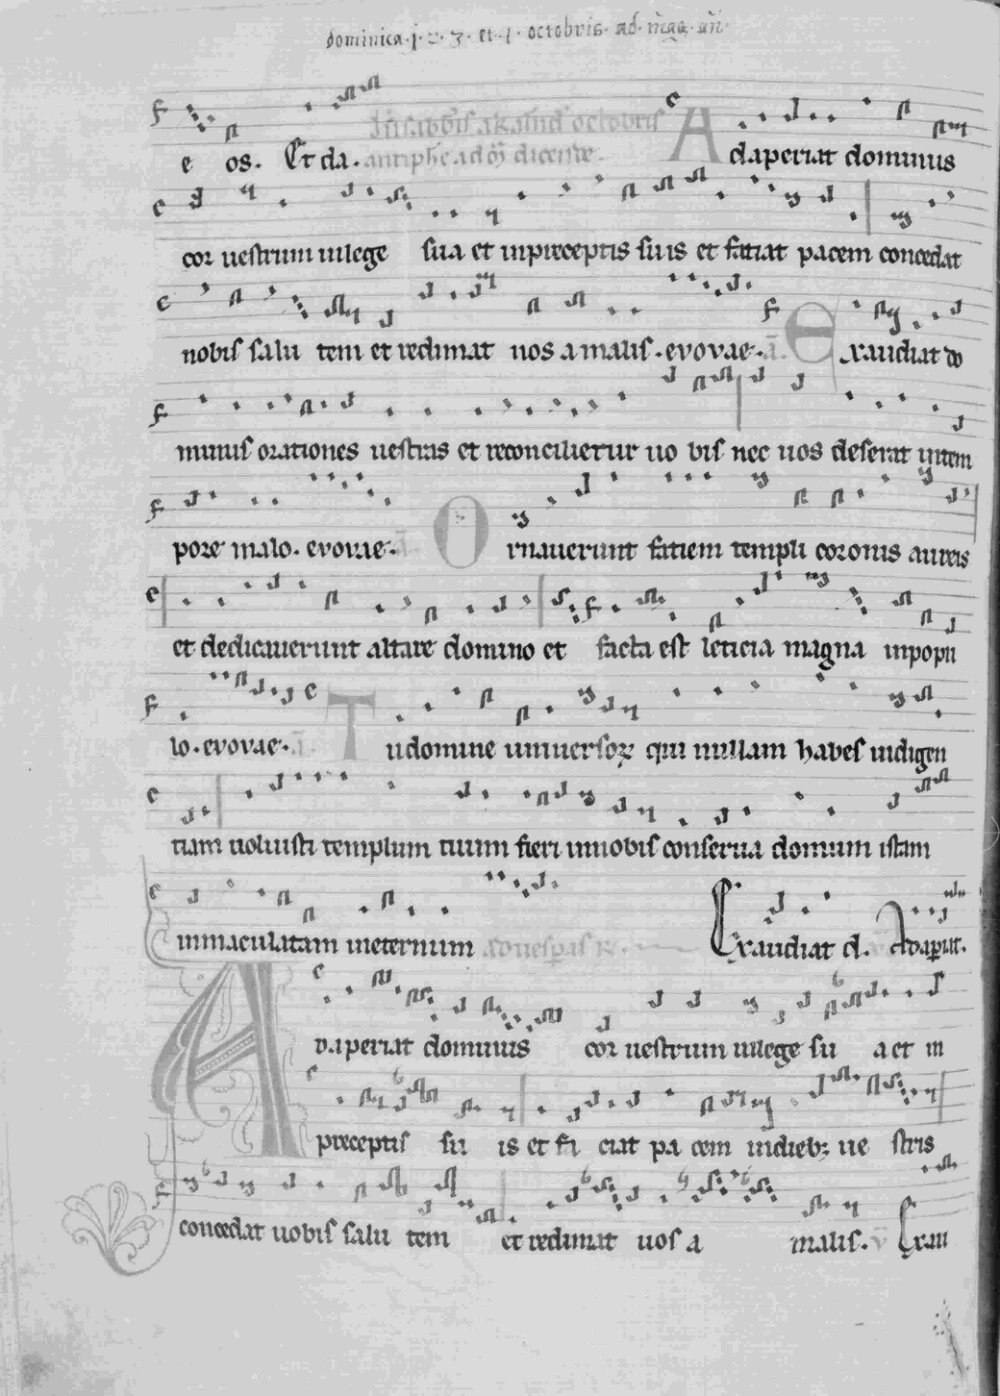 dominica · j · 2 · 3 · et · 1 · octobris · ad · m̄ga · an̄ ·
octobris
e os. Et da. antiphē ad dicente.
Adaperiat dominus
cor uestrum inlege sua et inpreceptis suis et fatiat pacem concedat
nobis salu tem et redimat nos a malis. evovae. ā. Exaudiat do
minus orationes uestras et reconcilietur uo bis nec uos deserat intem
pore malo. evovae. ā Ornauerunt fatiem templi coronis aureis
et dedicauerunt altare domino et facta est leticia magna inpopu
lo. evovae. ā. Tu domine uniuersoꝝ qui nullam habes indigen
tiam uoluisti templum tuum fieri innobis conserua domum istam
inmaculatam ineternum aduesp̄as R. Exaudiat d. Adap̄iat.
Adaperiat dominus cor uestrum inlege su a et in
preceptis su is et fa ciat pa cem indieb; ue stris
concedat uobis salu tem et redimat uos a malis. v̄ Exau